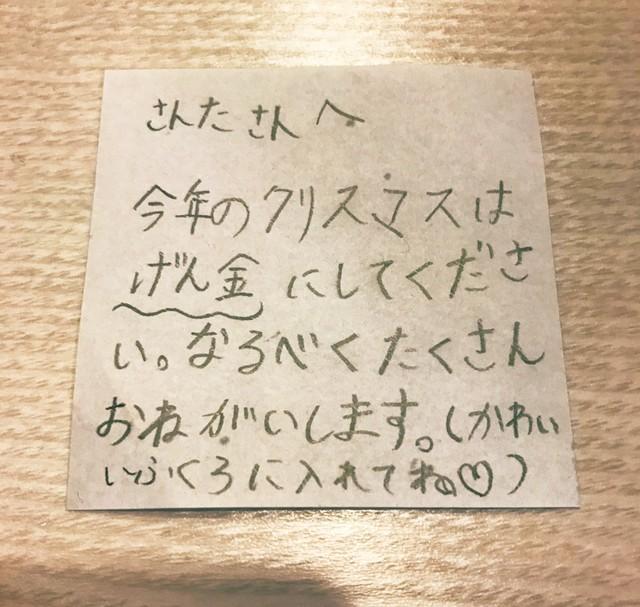 さんたさんへ
今年のクリスマスは
げん金にしてくださ
い。なるべくたくさん
おねがいします。(かわい
いふくろに入れてね♡)